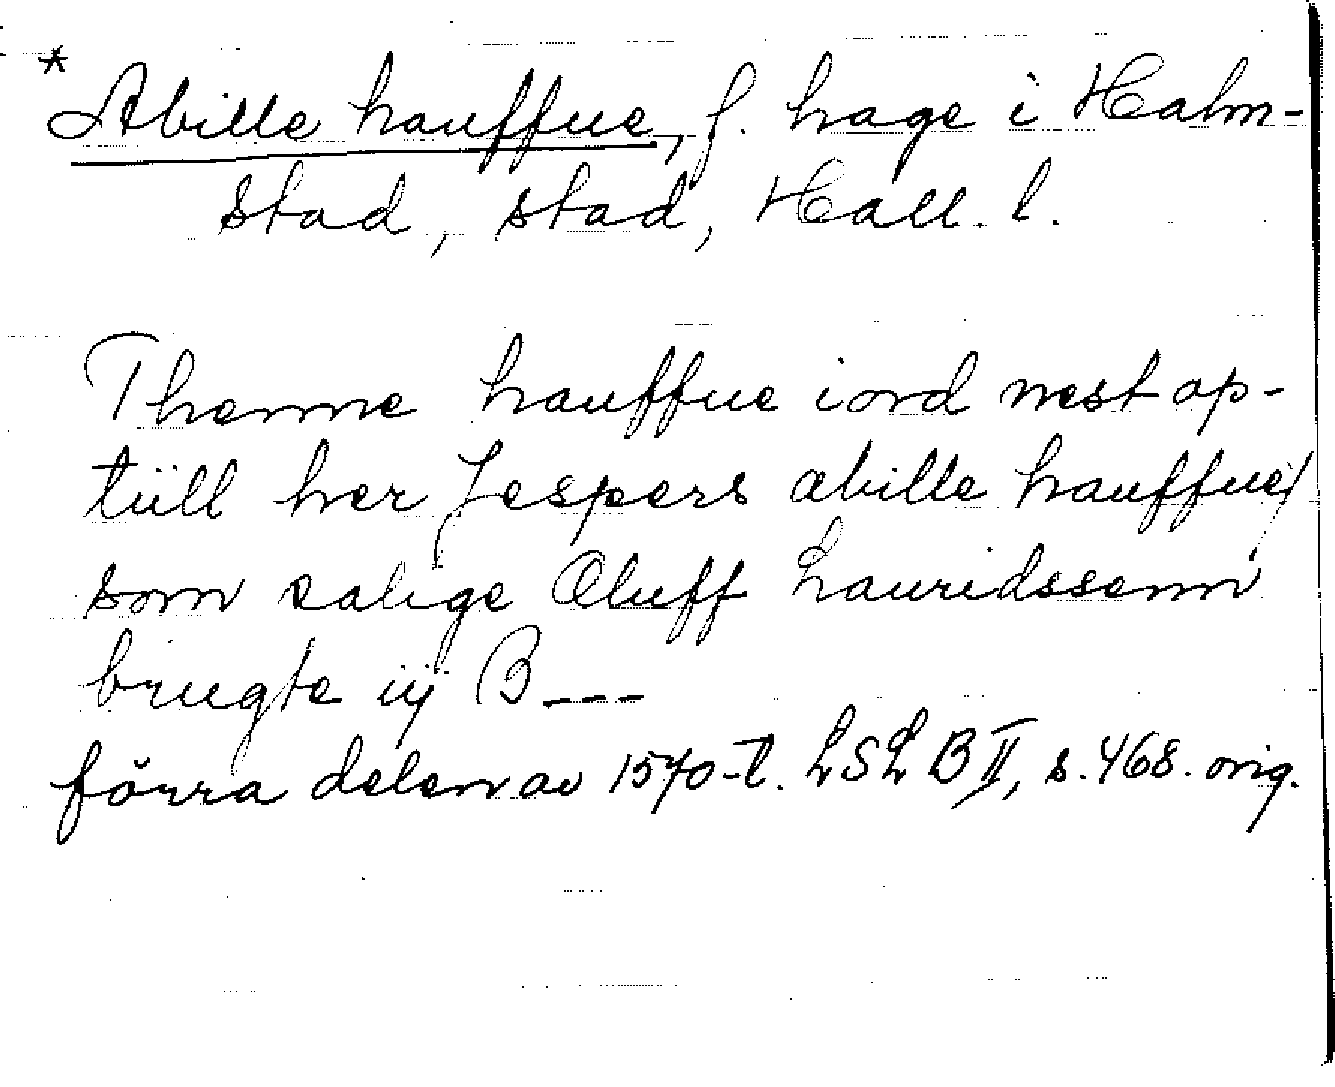 * Abille hauffue, f. hage i Halm-
stad, stad, Hall. l.
Thenne hauffue iord nest op-
tüll her Jespers abille hauffue/
som salige Oluff Lauridssenn
brugte iij β ---
förra delen av 1570-t. LSL B II, s. 468. orig.